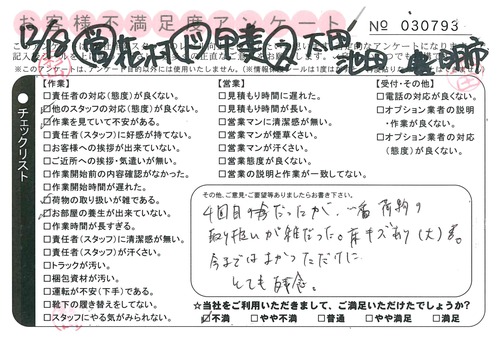 お客様不満足度アンケート
№ 030793
チェックリスト
【作業】
□責任者の対応(態度)が良くない。
□他のスタッフの対応(態度)が良くない。
□作業を見ていて不安がある。
□責任者(スタッフ)に好感が持てない。
□お客様への挨拶が出来ていない。
□ご近所への挨拶・気遣いが無い。
□作業開始前の内容確認がなかった。
□作業開始時間が遅れた。
□荷物の取り扱いが雑である。
□お部屋の養生が出来ていない。
□作業時間が長すぎる。
□責任者(スタッフ)に清潔感が無い。
□責任者(スタッフ)が汗くさい。
□トラックが汚い。
□梱包資材が汚い。
□運転が不安(下手)である。
□靴下の履き替えをしてない。
□スタッフにやる気がみられない。
【営業】
□見積もり時間に遅れた。
□見積もり時間が長い。
□営業マンに清潔感が無い。
□営業マンが煙草くさい。
□営業マンが汗くさい。
□営業態度が良くない。
□営業の説明と作業が一致してない。
【受付・その他】
□電話の対応が良くない。
□オプション業者の説明・作業が良くない。
□オプション業者の対応(態度)が良くない。
その他、ご意見・ご要望等ありましたらお書き下さい。
4回目の
だったが、一番荷物の
取り扱いが雑だった。床キズあり(大)
今まではよかっただけに
とても残念。
☆当社をご利用いただきまして、ご満足いただけたでしょうか?
□不満 □やや不満 □普通 □やや満足 □満足